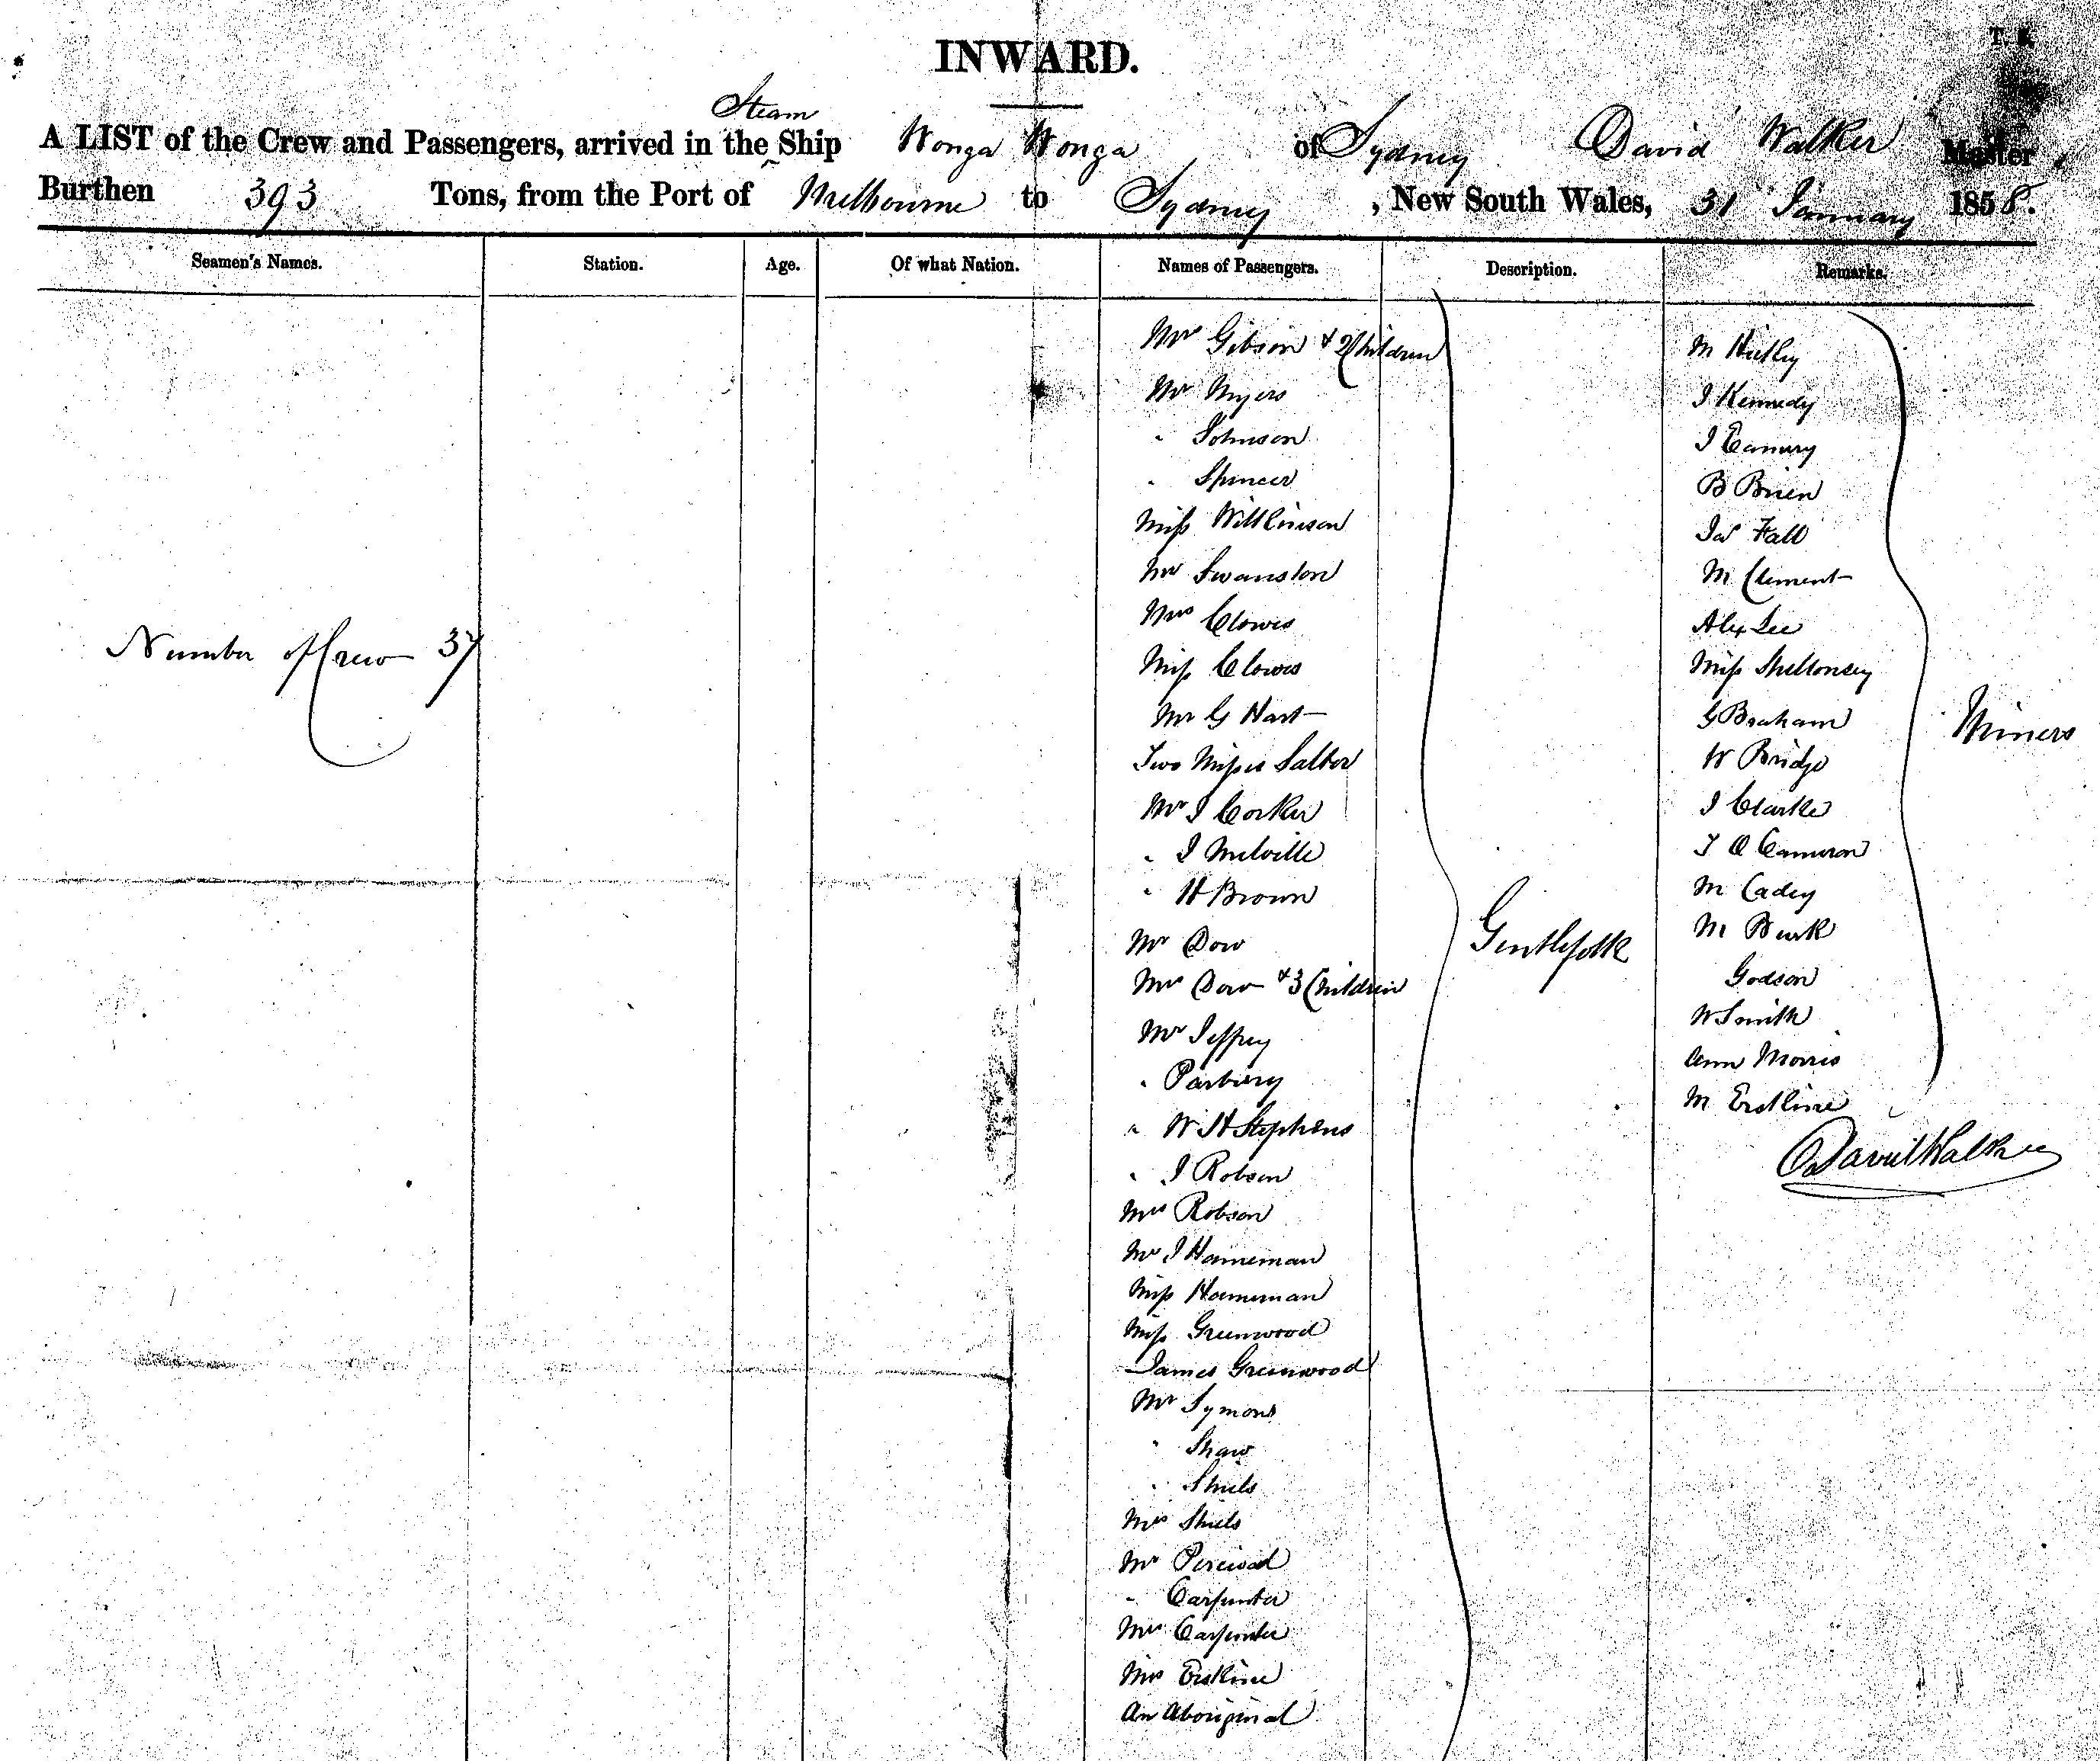 T. B.
INWARD.
Steam
A LIST of the Crew and Passengers, arrived in the Ship Wonga Wonga of Sydney David Walker Master
Burthen 393 Tons, from the Port of Melbourne to Sydney, New South Wales, 31 January 1858.
Seamen's Names. Station. Age. Of what Nation. Names of Passengers. Description. Remarks.
Number of Crew 37
Mrs Gibson & 2 Children
Mr Myers
" Johnson
" Spencer
Miss Wilkinson
Mr Swanston
Mrs Clowes
Miss Clowes
Mr G Hart
Two Misses Salter
Mr J Corker
" J Melville
" H Brown
Mr Dow
Mrs Dow & 3 Children
Mr Jeffrey
" Parbury
" W H Stephens
" J Robson
Mrs Robson
Mr J Hanneman
Miss Hanneman
Miss Greenwood
James Greenwood
Mr Symons
" Shaw
" Shiels
Mrs Shiels
Mr Percival
" Carpenter
Mrs Carpenter
Mrs Erskine
An Aboriginal
Gentlefolk
M
J Kennedy
J Canary
B Brien
Jas Hall
M Clement
Alex Lee
Miss
G Braham
W Bridge
J Clarke
J A Cameron
M Cadey
M Burk
Godson
W Smith
Ann Morris
M Erskine
Miners
David Walker